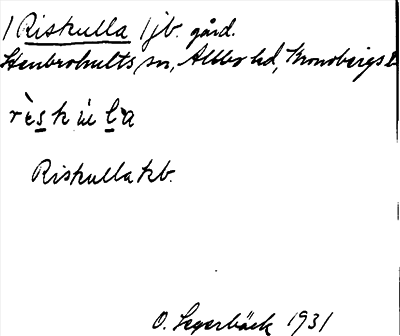 / Riskulla / jb. gård.
Stenbrohults sn, Allbo hd, Kronobergs L
rèskùla
Riskulla kb.
O. Segerbäck 1931